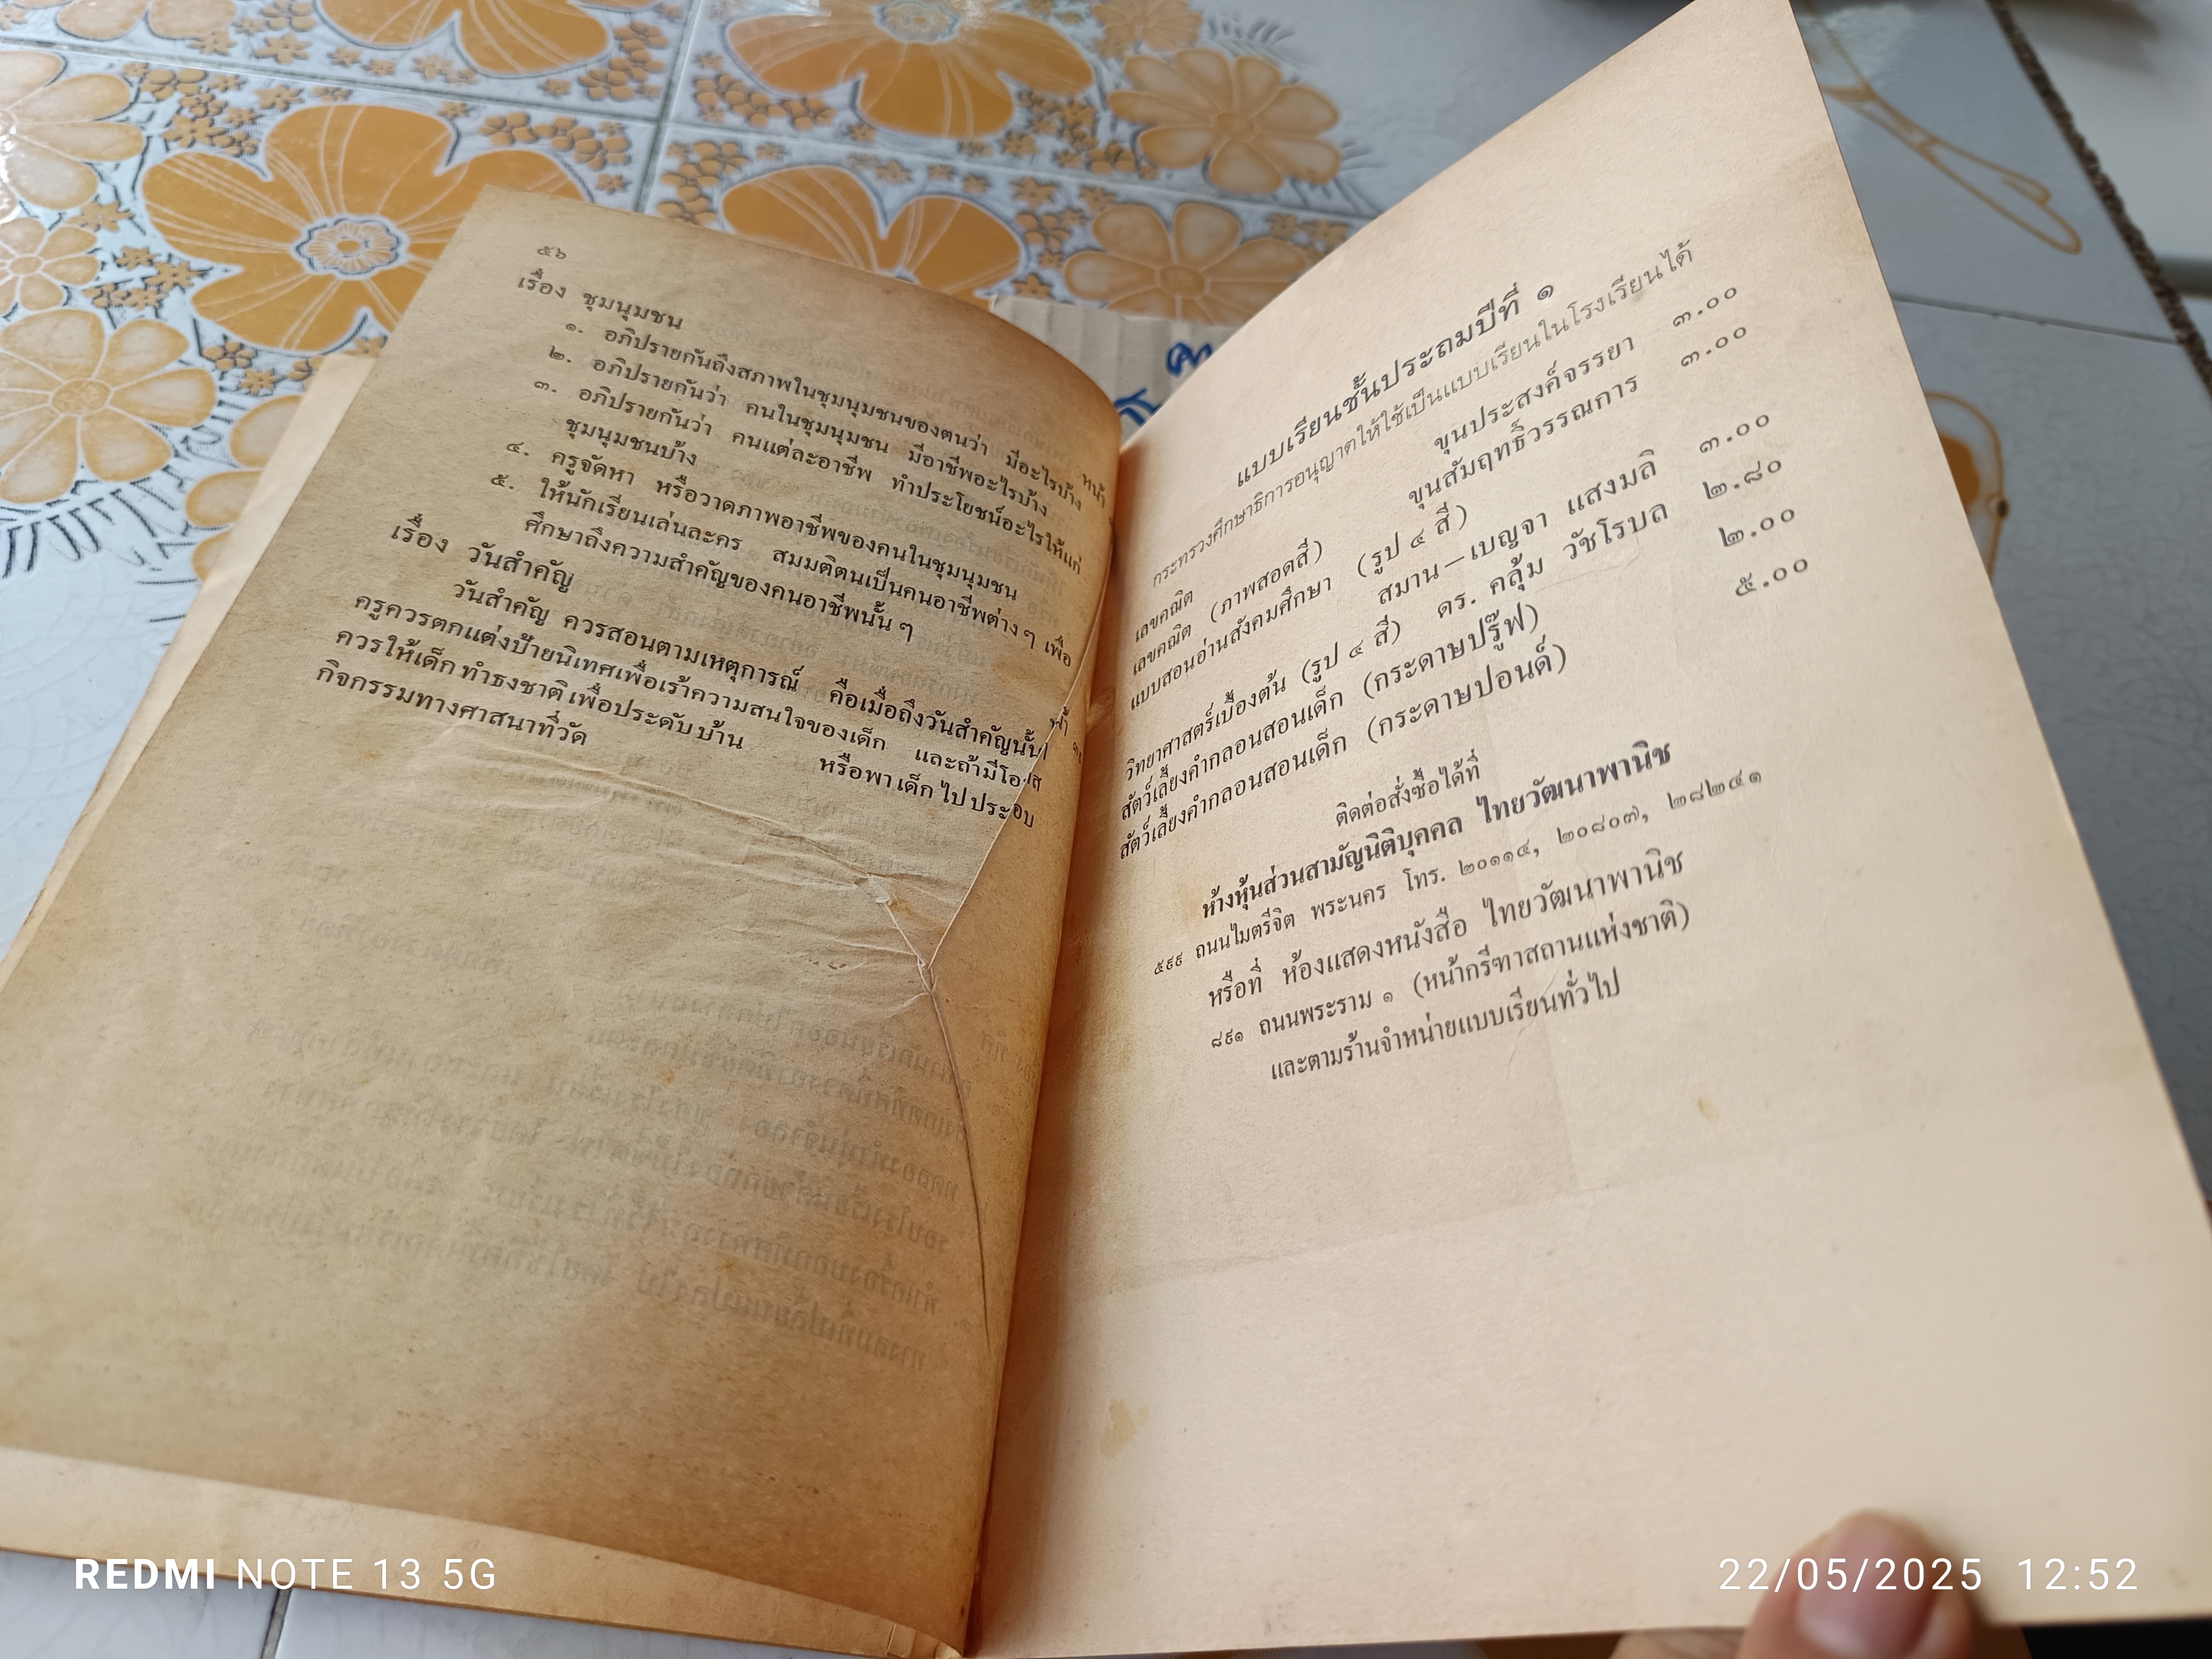 ๕๖
เรื่อง ชุมนุมชน
๑. อภิปรายกันถึงสภาพในชุมนุมชนของตนว่า มีอะไรบ้าง
๒. อภิปรายกันว่า คนในชุมนุมชน มีอาชีพอะไรบ้าง
๓. อภิปรายกันว่า คนแต่ละอาชีพ ทำประโยชน์อะไรให้แก่
ชุมนุมชนบ้าง
๔. ครูจัดหา หรือวาดภาพอาชีพของคนในชุมนุมชน
๕. ให้นักเรียนเล่นละคร สมมติตนเป็นคนอาชีพต่าง ๆ เพื่อ
ศึกษาถึงความสำคัญของคนอาชีพนั้น ๆ
เรื่อง วันสำคัญ
วันสำคัญ ควรสอนตามเหตุการณ์ คือเมื่อถึงวันสำคัญนั้น
ครูควรตกแต่งป้ายนิเทศเพื่อเร้าความสนใจของเด็ก และถ้ามีโอ
ควรให้เด็กทำธงชาติเพื่อประดับบ้าน หรือพาเด็กไปประอบ
กิจกรรมทางศาสนาที่วัด
หน้า
แบบเรียนชั้นประถมปีที่ ๑
กระทรวงศึกษาธิการอนุญาตให้ใช้เป็นแบบเรียนในโรงเรียนได้
เลขคณิต ขุนประสงค์จรรยา ๓.๐๐
เลขคณิต (ภาพสอดสี) ขุนสัมฤทธิ์วรรณการ ๓.๐๐
แบบสอนอ่านสังคมศึกษา (รูป ๔ สี)
สมาน—เบญจา แสงมลิ ๓.๐๐
วิทยาศาสตร์เบื้องต้น (รูป ๔ สี) ดร. คลุ้ม วัชโรบล ๒.๘๐
สัตว์เลี้ยงคำกลอนสอนเด็ก (กระดาษปรู๊ฟ) ๒.๐๐
สัตว์เลี้ยงคำกลอนสอนเด็ก (กระดาษปอนด์) ๕.๐๐
ติดต่อสั่งซื้อได้ที่
ห้างหุ้นส่วนสามัญนิติบุคคล ไทยวัฒนาพานิช
๕๙๙ ถนนไมตรีจิต พระนคร โทร. ๒๐๑๑๔, ๒๐๘๐๗, ๒๘๒๔๑
หรือที่ ห้องแสดงหนังสือ ไทยวัฒนาพานิช
๘๙๑ ถนนพระราม ๑ (หน้ากรีฑาสถานแห่งชาติ)
และตามร้านจำหน่ายแบบเรียนทั่วไป
REDMI NOTE 13 5G
22/05/2025 12:52